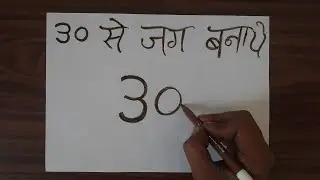 30 से जग बनाये
30